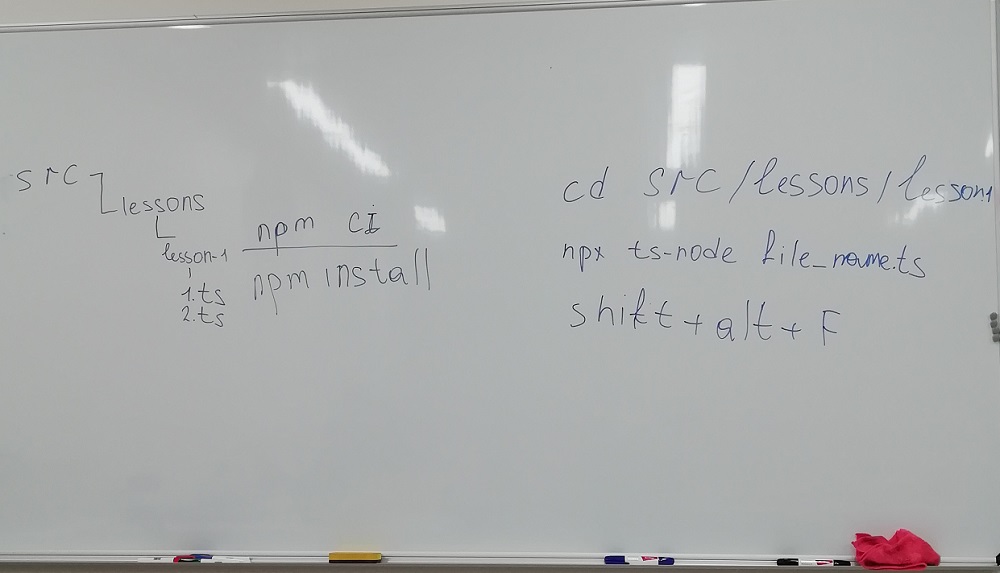 src
lessons
lesson-1
1.ts
2.ts
npm ci
npm install
cd src/lessons/lesson1
npx ts-node file_name.ts
shift+alt+F